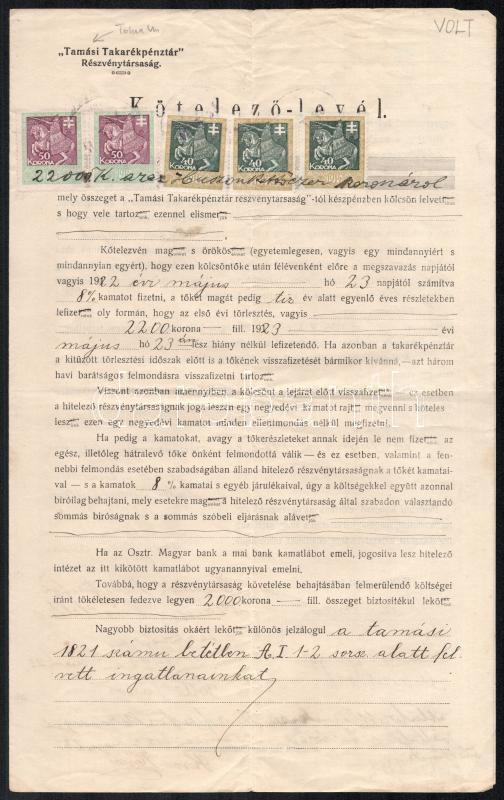 Tolna Vm
VOLT
„Tamási Takarékpénztár”
Részvénytársaság.
Kötelező-levél.
50 KORONA 50 KORONA 40 KORONA 40 KORONA 40 KORONA
22000 K. azaz Huszonkettőezer koronáról
mely összeget a „Tamási Takarékpénztár részvénytársaság”-tól készpénzben kölcsön felvet
s hogy vele tartoz ezennel elismer
Kötelezvén mag s örökös (egyetemlegesen, vagyis egy mindannyiért s
mindannyian egyért), hogy ezen kölcsöntőke után félévenként előre a megszavazás napjától
vagyis 1922 évi május hó 23 napjától számítva
8% kamatot fizetni, a tőkét magát pedig tiz év alatt egyenlő éves részletekben
lefizet oly formán, hogy az első évi törlesztés, vagyis
2200 korona fill. 1923 évi
május hó 23 án lesz hiány nélkül lefizetendő. Ha azonban a takarékpénztár
a kitűzött törlesztési időszak előtt is a tőkének visszafizetését bármikor kívánná,—azt három
havi barátságos felmondásra visszafizetni tartoz
Viszont azonban amennyiben a kölcsönt a lejárat előtt visszafizet ez esetben
a hitelező részvénytársaságnak joga leszen egy negyedévi kamatot rajt megvenni s köteles
lesz ezen egy negyedévi kamatot minden ellentmondás nélkül megfizetni.
Ha pedig a kamatokat, avagy a tőkerészleteket annak idején le nem fizet az
egész, illetőleg hátralevő tőke önként felmondottá válik — és ez esetben, valamint a fen-
nebbi felmondás esetében szabadságában álland hitelező részvénytársaságnak a tőkét kamatai-
val — s a kamatok 8 % kamatai s egyéb járulékaival, úgy a költségekkel együtt azonnal
biróilag behajtani, mely esetekre mag a hitelező részvénytársaság által szabadon választandó
sommás biróságnak s a sommás szóbeli eljárásnak alávet
Ha az Osztr. Magyar bank a mai bank kamatlábot emeli, jogosítva lesz hitelező
intézet az itt kikötött kamatlábot ugyanannyival emelni.
Továbbá, hogy a részvénytársaság követelése behajtásában felmerülendő költségei
iránt tökéletesen fedezve legyen 2000 korona fill. összeget biztosítékul leköt
Nagyobb biztosítás okáért leköt különös jelzálogul a tamási
1821 számu betétben A I 1-2 sorsz. alatt fel
vett ingatlanainkat